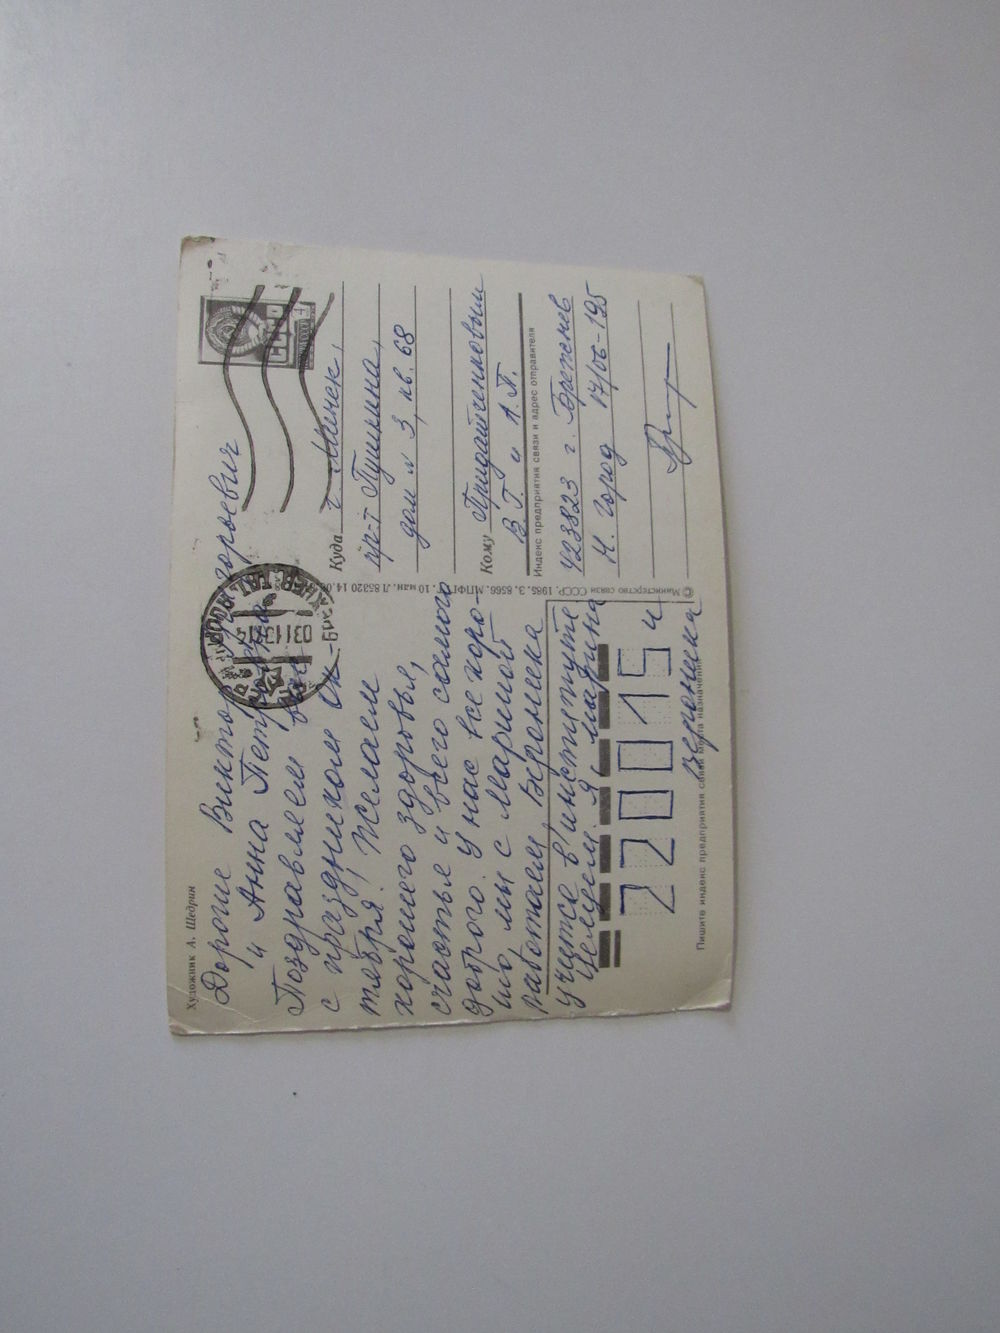 Художник А. Щедрин
Дорогие Виктор Григорьевич
и Анна Петровна
Поздравляем вас
с праздником Ок-
тября! Желаем
хорошего здоровья,
счастья и всего самого
доброго. У нас все хоро-
шо мы с Мариной
работаем, Вероника
учится в институте
Целуем. Я, Марина
и
Вероника
220015
Пишите индекс предприятия связи места назначения
© Министерство связи СССР. 1985. З. 8566. МПФГ. 10 млн. Л 85320 14.06
ПОЧТА СССР
4
Куда г. Минск,
пр-т Пушкина,
дом № 3, кв. 68
Кому Придатченковым
В. Г. и А. П.
Индекс предприятия связи и адрес отправителя
423823 г. Брежнев
Н. город 17/06-195